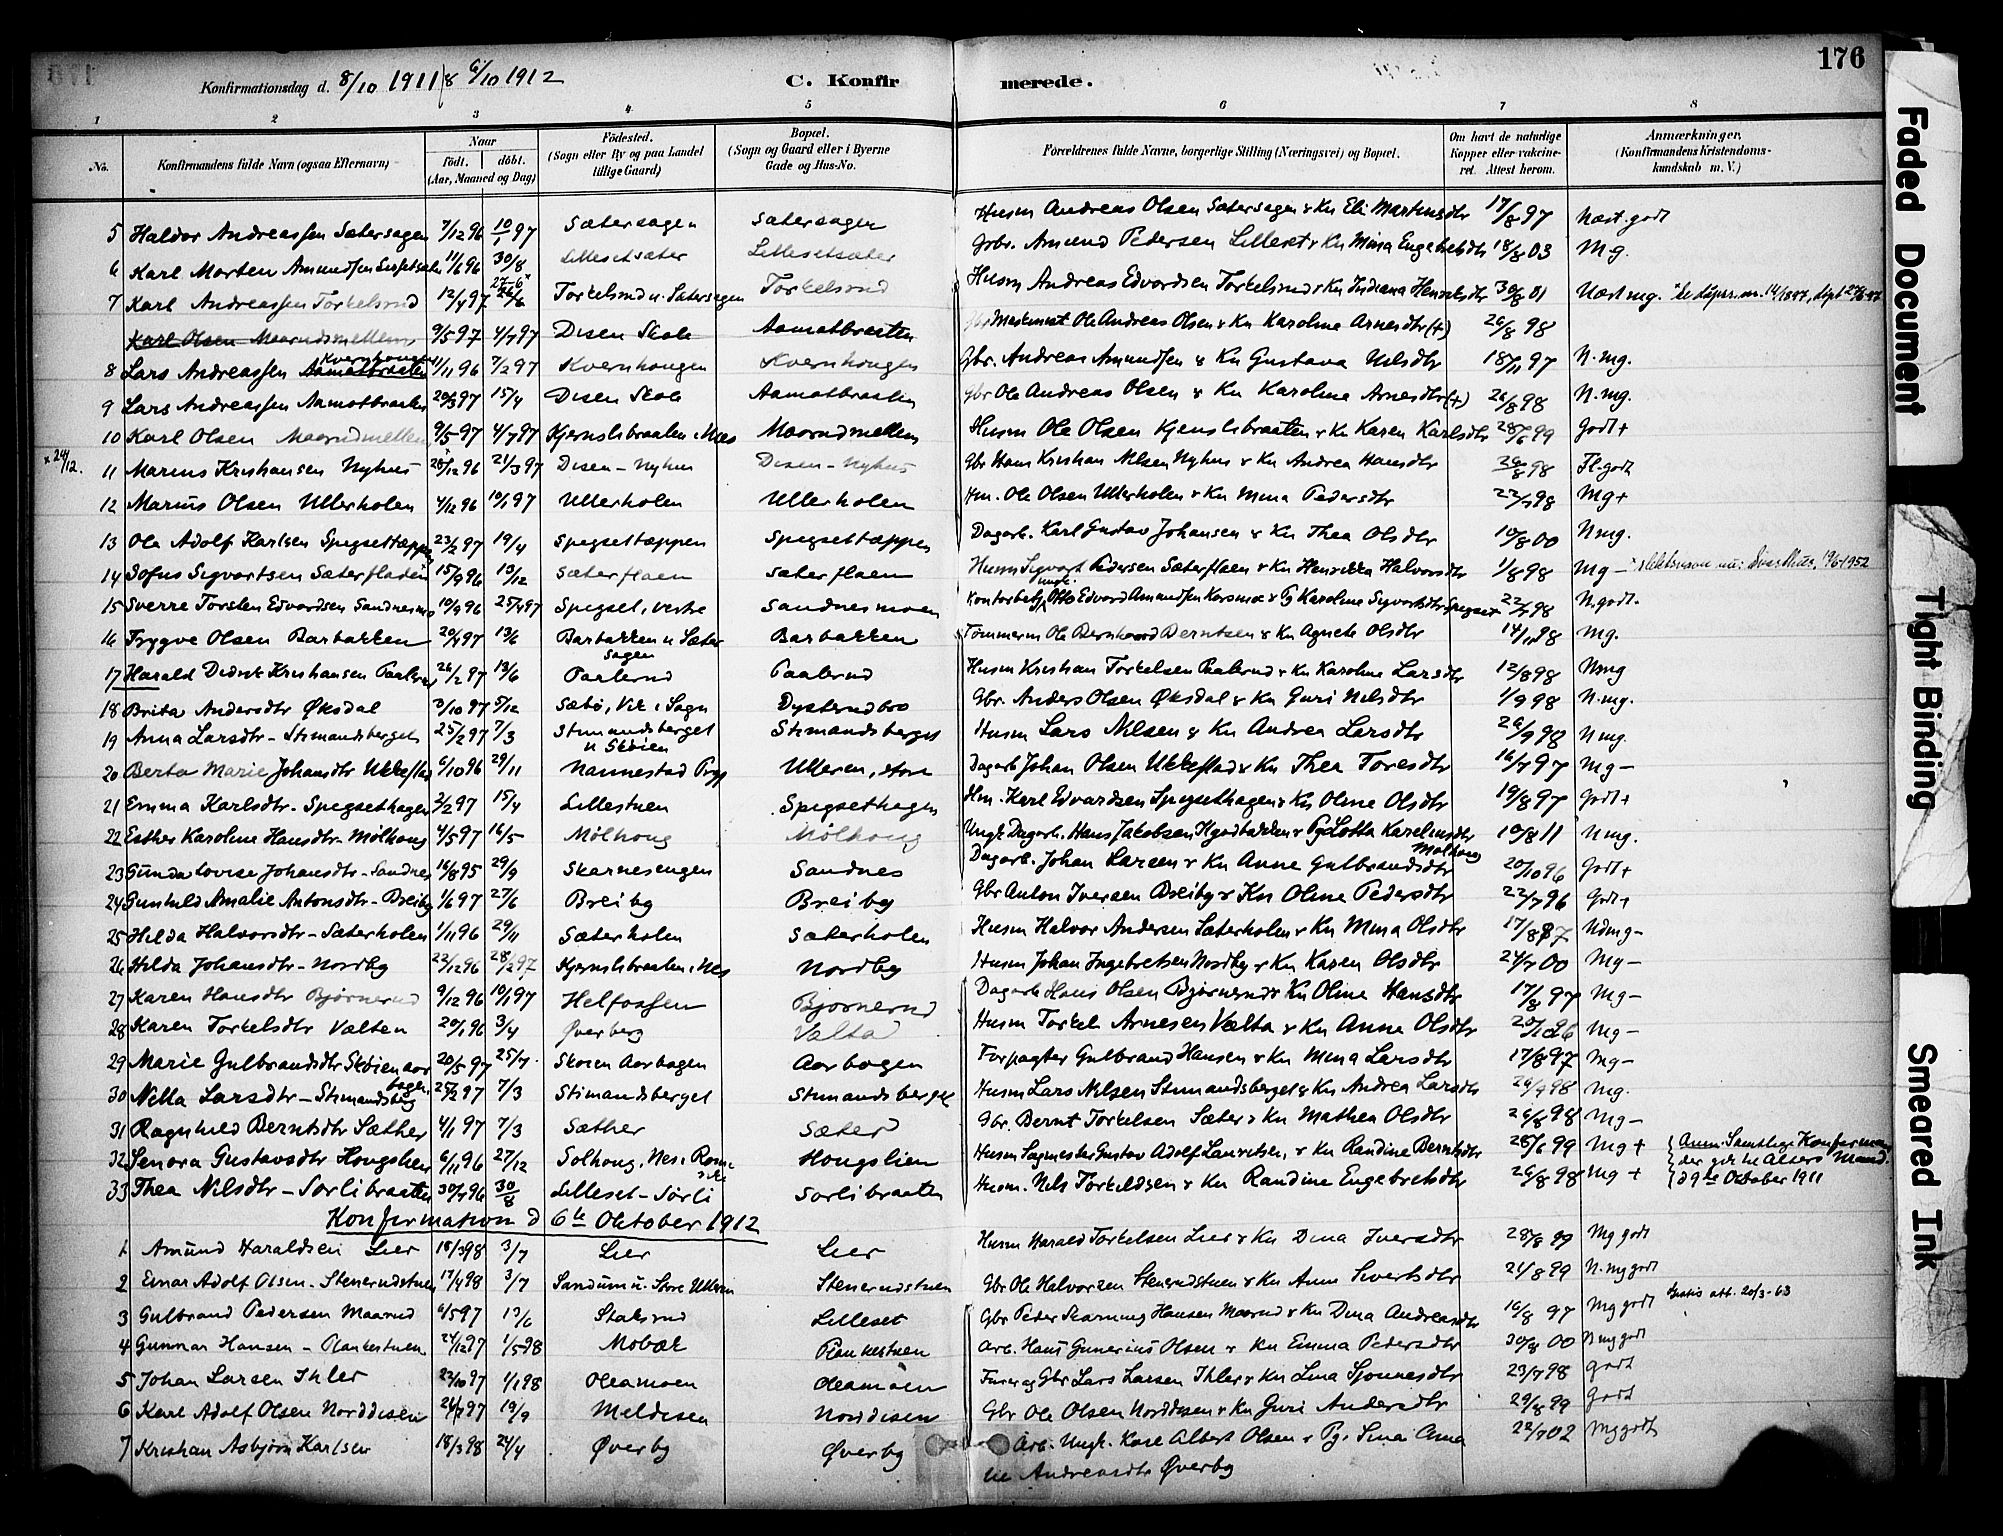 176
Konfirmationsdag d. 8/10 1911 & 6/10 1912 C. Konfir merede.
1 2 3 4 5 6 7 8
No. Konfirmandens fulde Navn (ogsaa Efternavn) Naar født. døbt. (Aar, Maaned og Dag) Fødested. (Sogn eller By og paa Landet tillige Gaard) Bopæl. (Sogn og Gaard eller i Byerne Gade og Hus-No. Forældrenes fulde Navne, borgerlige Stilling (Næringsvei) og Bopæl. Om havt de naturlige Kopper eller vakcineret. Attest herom. Anmærkninger. (Konfirmandens Kristendomskundskab m. V.)
5 Haldor Andreassen Sætersagen 7/12 96 10/1 97 Sætersagen Sætersagen Husm Andreas Olsen Sætersagen & Kn Eli Martinsdtr 17/8 97 Næst. godt
6 Karl Morten Amundsen 11/6 96 30/8 Lillesetsæter Lillesetsæter Gbr. Amund Pedersen Lilleset & Kn Mina Engebretsdtr 18/8 03 Mg.
7 Karl Andreassen Torkelsrud 12/4 97 27-6 Torkelsrud u. Sætersagen Torkelsrud Husm Andreas Edvardsen Torkelsrud & Kn Indiana Henriksdtr 30/8 01 Næst mg.
Karl Olsen Maarudmellem 9/5 97 4/7 97 Disen Skole Aamotbraaten Ole Andreas Olsen & Kn Karoline Arnesdtr (+) 26/8 98
8 Lars Andreassen Kvernhougen Aamotbraaten 11/11 96 7/2 97 Kvernhougen Kvernhougen Gbr. Andreas Amundsen & Kn Gustava Nilsdtr 18/11 97 N. mg.
9 Lars Andreassen Aamotbraaten 20/3 97 15/4 Disen Skole Aamotbraaten Gbr Ole Andreas Olsen & Kn Karoline Arnesdtr (+) 26/8 98 N. mg.
10 Karl Olsen Maarudmellem 9/5 97 4/7 97 Kjernslibraaten i Næs Maarudmellem Husm Ole Olsen Kjenslibraaten & Kn Karen Karlsdtr 28/6 99 Godt+
x 24/12.
11 Marius Kristiansen Nyhus 28/12 96 21/3 97 Disen-Nyhus Disen-Nyhus Gbr Hans Kristian Nilsen Nyhus & Kn Andrea Hansdtr 26/8 98 Tl. godt
12 Marius Olsen Ullerholen 4/12 96 10/1 97 Ullerholen Ullerholen Hm. Ole Olsen Ullerholen & Kn Mina Pedersdtr 22/7 98 Mg+
13 Ole Adolf Karlsen Spigsettæppen 23/2 97 19/4 Spigsettæppen Spigsettæppen Dagarb. Karl Gustav Johansen & Kn Thea Olsdtr 10/8 00 N mg.
14 Sofus Sigvartsen Sæterfladen 15/9 96 13/12 Sæterflaen Sæterflaen Husm Sigvart Pedersen Sæterflaen & Kn Henrikka Halvorsdtr 1/8 98 Mg -
15 Sverre Torsten Edvardsen Sandnesmo 10/9 96 25/4 97 Spigset, vestre Sandnesmoen Kontorbetj. Otto Edvard Amundsen Korsmo & Pg Karoline Sigvartsdtr Spigset 22/7 98 N. godt.
16 Trygve Olsen Barbakken 20/4 97 13/6 Barbakken u Sætersagen Barbakken Tømmerm Ole Bernhard Berntsen & Kn Agnete Olsdtr 14/11 98 Mg.
17 Harald Didrik Kristiansen Paalerud 26/2 97 13/6 Paalerud Paalrud Husm Kristian Torkelsen Paalerud & Kn Karoline Larsdtr 12/8 98 Nmg
18 Brita Andersdtr Øksdal 2/10 97 5/12 Sæbø, Vik i Sogn Dysterudbro Gbr. Anders Olsen Øksdal & Kn Guri Nilsdtr 1/9 98 N. mg.
19 Anna Larsdtr - Stimandsberget 25/2 97 7/3 Stimandsberget u Skøien Stimandsberget Husm Lars Nilsen & Kn Andrea Larsdtr 26/9 98 N mg.
20 Berta Marie Johansdtr Ukkestad 6/10 96 29/11 Nannestad Pgj Ulleren, store Dagarb Johan Olsen Ukkestad & Kn Thea Toresdtr 16/7 97 Mg -
21 Emma Karlsdtr. Spigsethagen 2/2 97 15/4 Lillestuen Spigsethagen Hm. Karl Edvardsen Spigsethagen & Kn Oline Olsdtr 19/8 97 Godt+
22 Esther Karoline Hansdtr. Mølhoug 4/5 97 16/5 Mølhoug Mølhoug Ungk. Dagarb. Hans Jakobsen & Pg Lotta Karelinsdtr Mølhoug 10/8 11 N mg.
23 Gunda Lovise Johansdtr - Sandnes 16/8 95 29/9 Skarnesengen Sandnes Dagarb. Johan Larsen & Kn Anne Gulbrandsdtr 20/10 96 Godt+
24 Gunhild Amalie Antonsdtr - Breiby 1/6 97 27/6 Breiby Breiby Gbr Anton Iversen Breiby & Kn Oline Pedersdtr 22/7 96 Godt+
25 Hilda Halvorsdtr - Sæterholen 1/11 96 29/11 Sæterholen Sæterholen Husm Halvor Andersen Sæterholen & Kn Mina Olsdtr 17/8 97
26 Hilda Johansdtr - Nordby 22/12 96 28/2 97 Kjernslibraaten i Nes Nordby Husm Johan Ingebretsen Nordby & Kn Karen Olsdtr 24/7 00 Mg -
27 Karen Hansdtr Bjørnerud 9/12 96 10/1 97 Helfossen Bjørnerud Dagarb Hans Olsen Bjørnerud & Kn Oline Hansdtr 17/8 97 Mg -
28 Karen Torkelsdtr Vælten 20/1 96 3/4 Øverby Vælta Husm Torkel Arnesen Vælta & Kn Anna Olsdtr 20/10 96 Mg -
29 Marie Gulbrandsdtr Skøienaarbogen 20/5 97 25/7. Skøien Aarbogen Aarbogen Forpagter Gulbrand Hansen & Kn Mina Larsdtr 17/8 97 Mg -
30 Nilla Larsdtr - Stimandsberg 25/2 97 7/3 Stimandsberget Stimandsberget Husm Lars Nilsen Stimandsberget & Kn Andrea Larsdtr 26/9 98 Mg.
31 Ragnhild Berntsdtr Sæther 4/1 97 7/3 Sæther Sæter Gbr. Bernt Torkelsen Sæter & Kn Mathea Olsdtr 26/8 98 Mg -
32 Senora Gustavsdtr Hougslien 6/11 96 27/12 Solhoug, Nes i Romerike Hougslien Husm Sagmester Gustav Adolf Lauritsen, & Kn Randine Berntsdtr 28/6 99 Mg + Anm. Samtlige Konfirmander gik til Alters Mand.
33 Thea Nilsdtr - Sørlibraaten 30/7 96 30/8 Lilleset-Sørli Sørlibraaten Husm. Nils Torkildsen & Kn Randine Engebretsdtr 26/8 98 Mg + d 9de Oktober 1911
Konfirmation d 6te Oktober 1912
1 Amund Haraldsen Lier 18/3 98 3/7 Lier Lier Husm Harald Torkelsen Lier & Kn Dina Iversdtr 28/8 99 Mg godt
2 Einar Adolf Olsen - Stenerudstuen 17/4 98 3/7 Sandum u. Store Ulleren Stenerudstuen Gbr Ole Halvorsen Stenerudstuen & Kn Anne Sivertsdtr 24/8 99 N. mg godt
3 Gulbrand Pedersen Maarud 6/5 97 13/6 Staksrud Lilleset Gbr Peder Skarnung Hansen Maarud & Kn Dina Andreasdtr 16/8 97 Mg godt Gratis att. 20/3-63
4 Gunnar Hansen - Plankestuen 24/12 97 1/5 98 Mobæk Plankestuen Arb. Hans Gunerius Olsen & Kn Emma Pedersdtr 30/8 00 N mg godt
5 Johan Larsen Ihler 22/10 97 1/1 98 Oleamoen Oleamoen Furer og Gbr Lars Larsen Ihler & Kn Lina Sjonnesdtr 23/7 98 Godt
6 Karl Adolf Olsen Norddisen 24/7 97 19/9 Meldisen Norddisen Gbr Ole Olsen Norddisen & Kn Guri Andersdtr 29/8 99 Godt
7 Kristian Asbjørn Karlsen 18/3 98 24/4 Øverby Øverby Arb. Ungk. Karl Albert Olsen & Pg. Lina Amalie Andreasdtr Øverby 22/7 02 Mg godt
Faded Document
Tight Binding
Smeared Ink